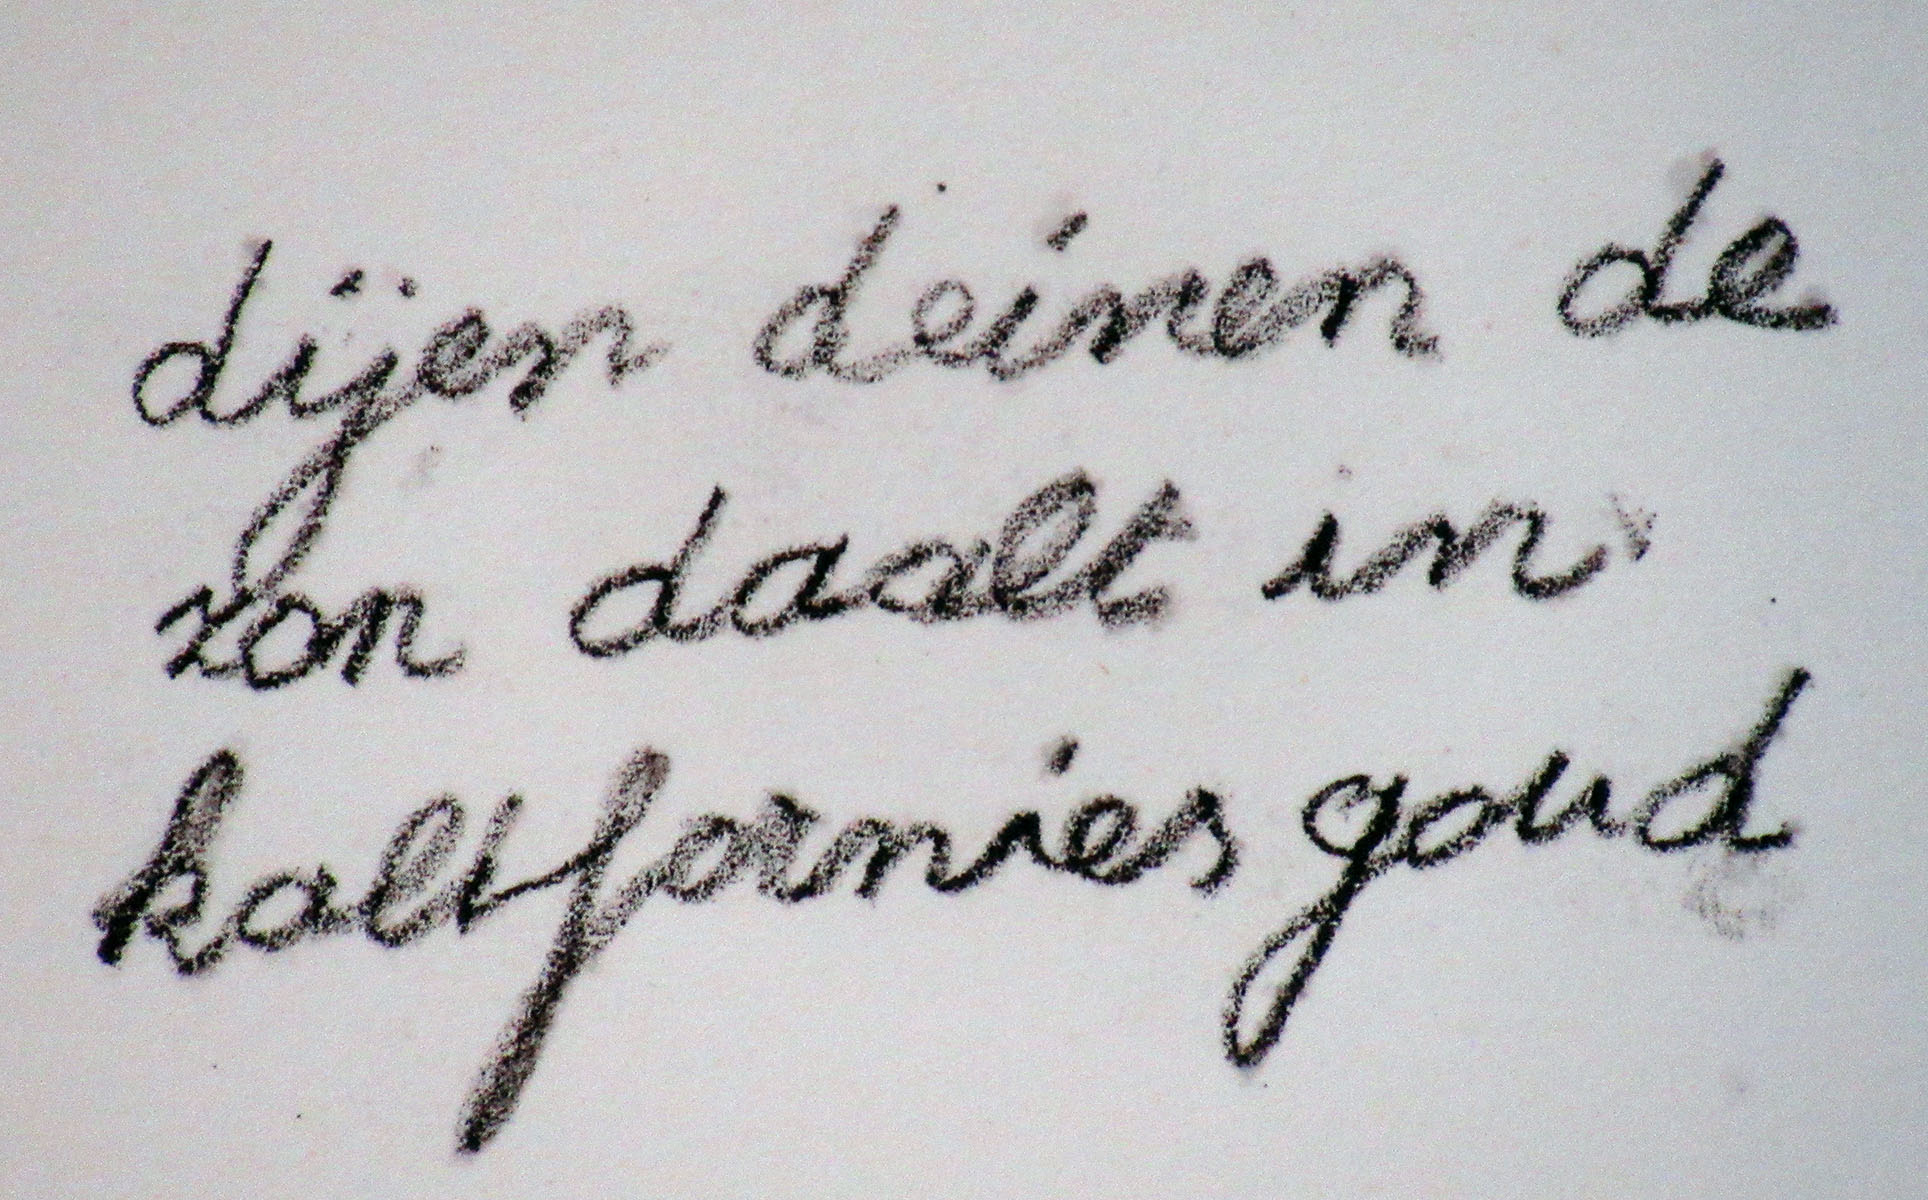 dijen deinen de
zon daalt in
kalifornies goud